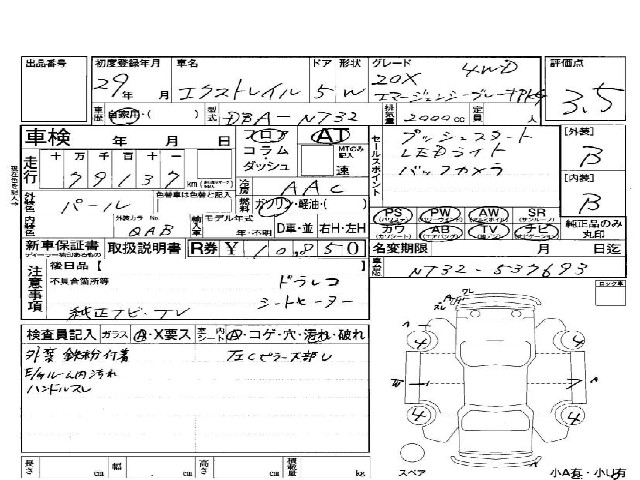 出品番号 初度登録年月 車名 ドア 形状 グレード 4WD 評価点
29年 月 エクストレイル 5 W 20X 3.5
エマージェンシーブレーキPKG
車歴 自家用・( ) 型式 DBA-NT32 排気量 2000cc 定員 人
車検 年 月 日 フロア AT
コラム MTのみ記入
ダッシュ 速
セールスポイント
プッシュスタート
LEDライト
バックカメラ
[外装]
B
[内装]
B
走行 十 万 千 百 十 一
79137 km
冷房 AAC
外装色 パール 色替車は色替と記入
燃料 ガソリン・軽油・( )
内装色 外装カラーNo. QAB
輸入車 モデル年式 年・不明 D車・並 右H・左H
PS PW AW SR
カワ AB TV ナビ
純正品のみ丸印
新車保証書 取扱説明書 R券 ¥10,850
名変期限 月 日迄
車台No. NT32-537693
注意事項
後日品【
不具合箇所等
ドラレコ
シートヒーター
純正ナビ・TV
ロック車
検査員記入 ガラス A・X要ス 室内 シート A・コゲ・穴・汚れ・破れ
外装 鉄粉付着
左Cピラー内部し
E/gルーム内汚れ
ハンドルスレ
ワレ
スレ
A
A
4 4
W 7 A
4 4
長さ cm 幅 cm 高さ cm 積載量 kg
スペア
小A有・小U有